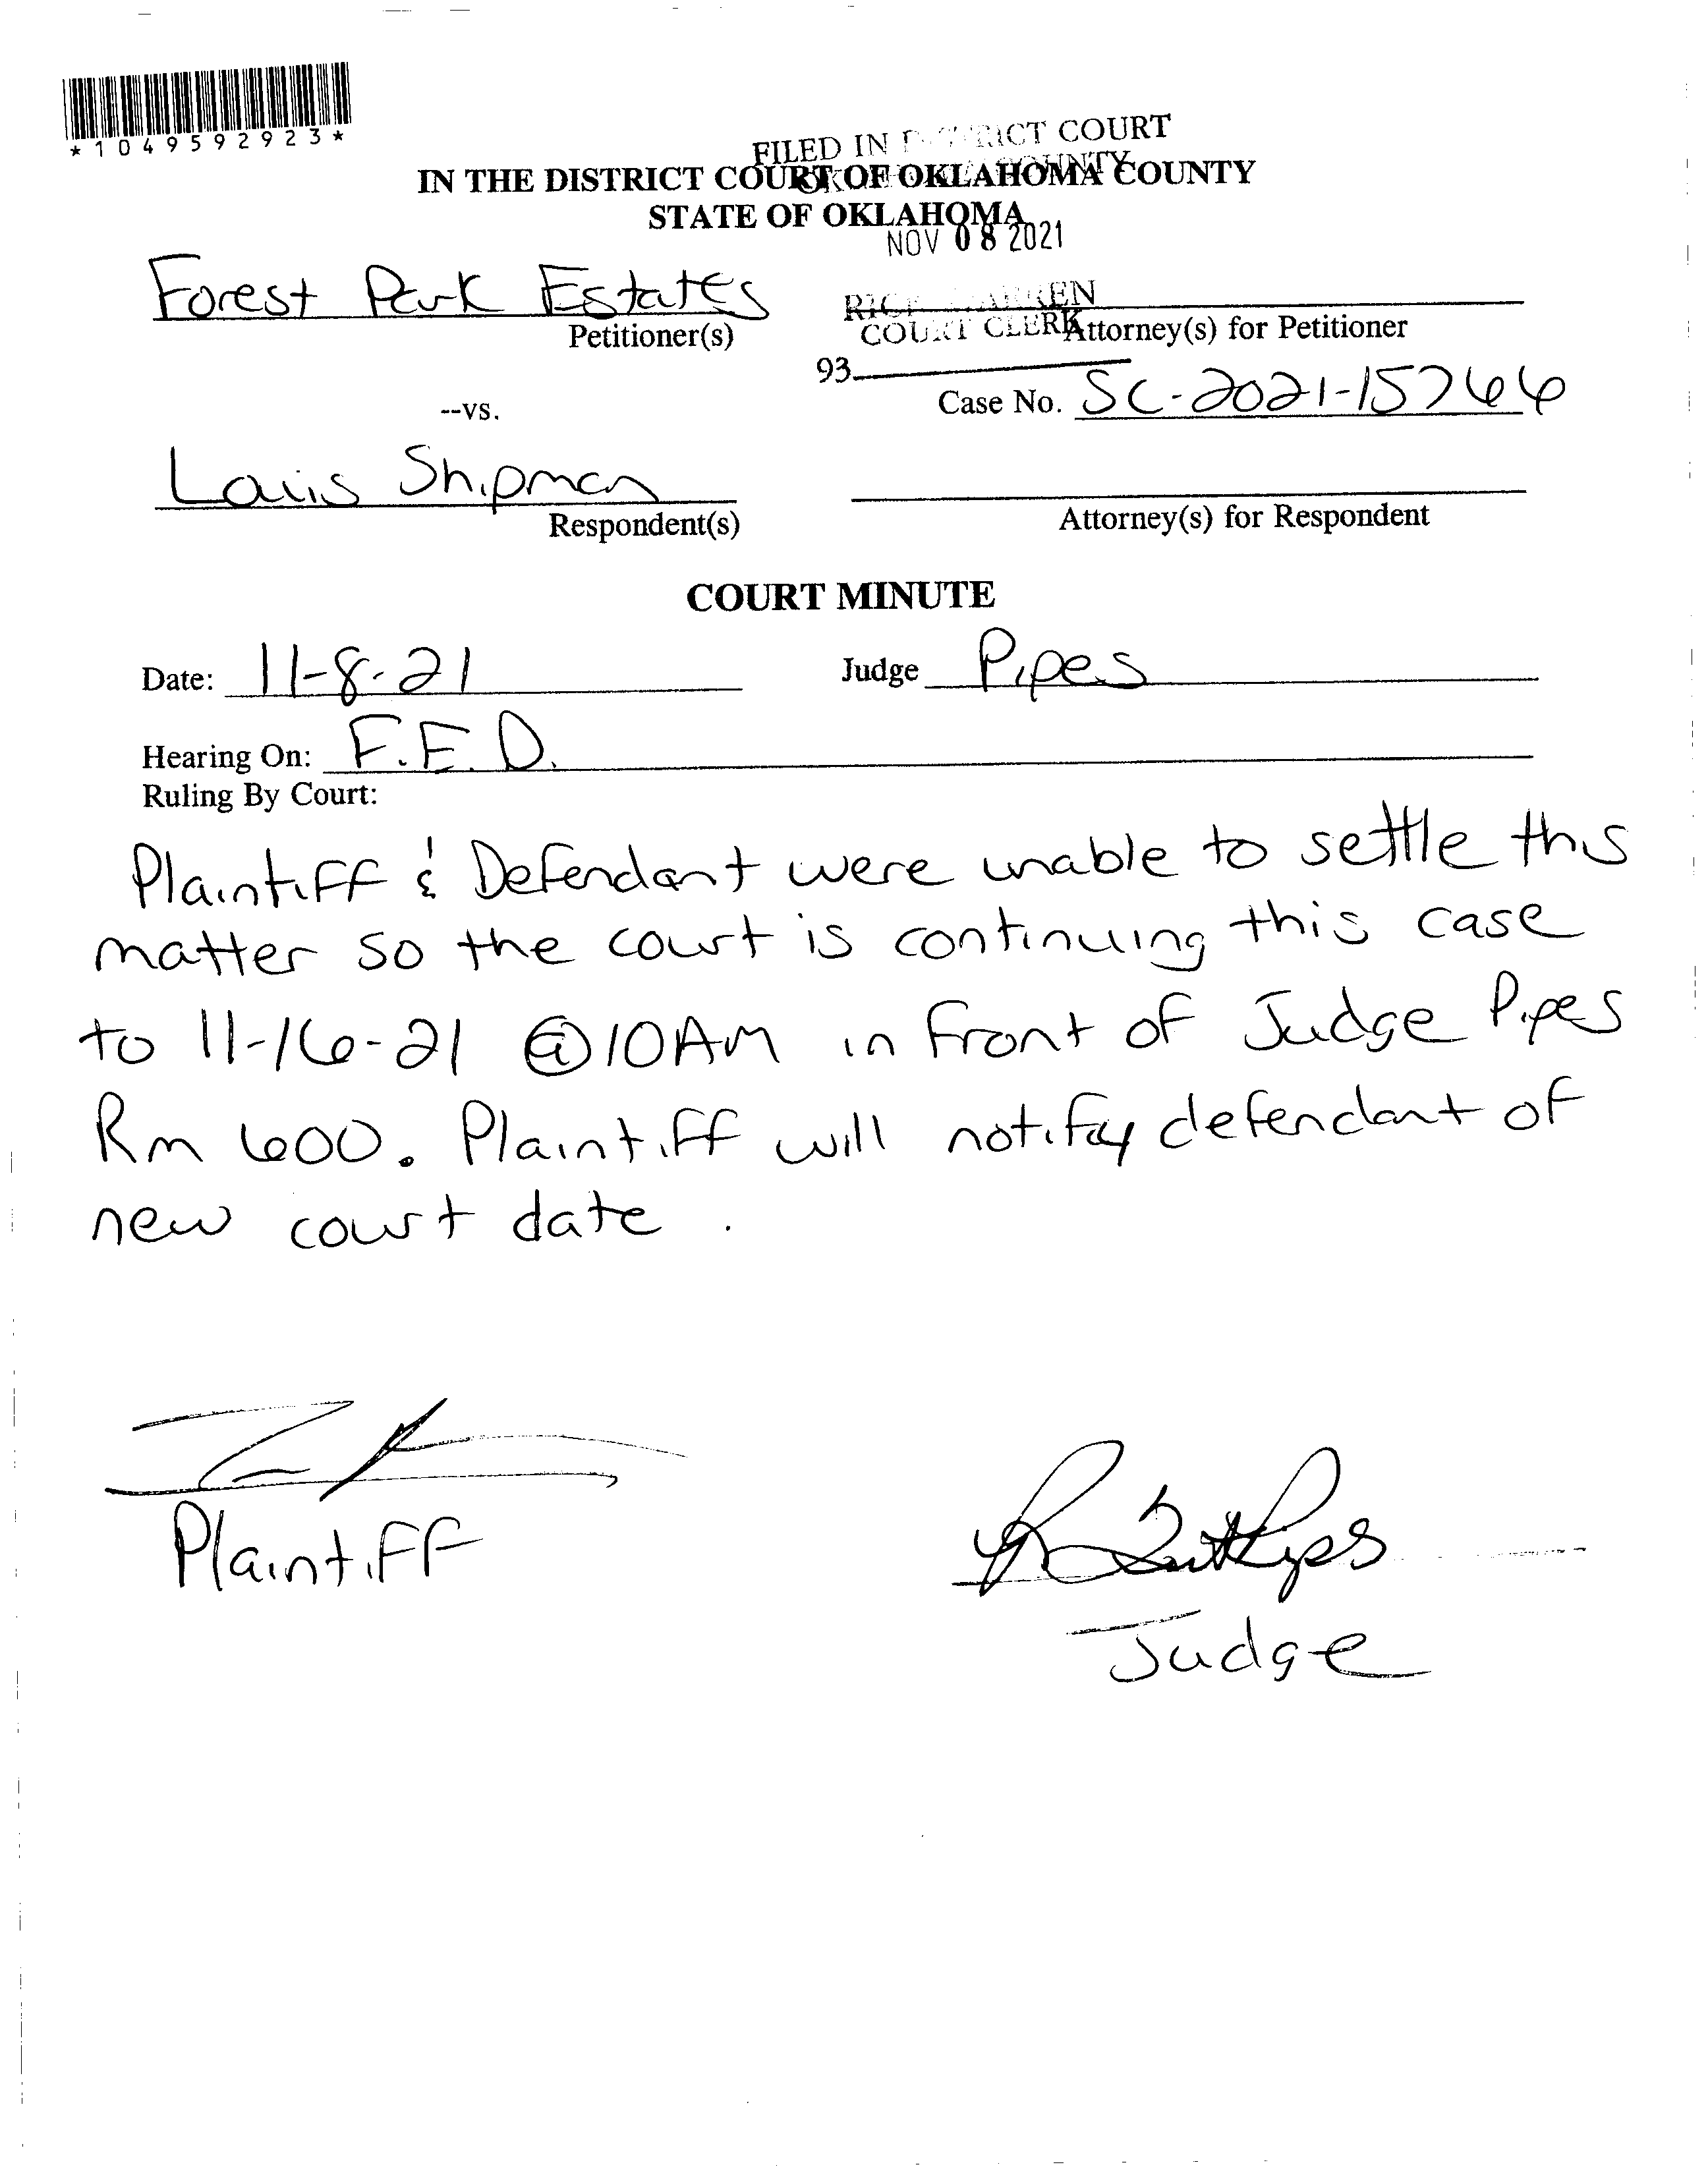 *1049592923*
FILED IN DISTRICT COURT
OKLAHOMA COUNTY
IN THE DISTRICT COURT OF OKLAHOMA COUNTY
STATE OF OKLAHOMA
NOV 08 2021
Forest Park Estates
Petitioner(s)
RICK WARREN
COURT CLERK
Attorney(s) for Petitioner
93
--vs.
Case No. SC-2021-15766
Shipman
Respondent(s)
Attorney(s) for Respondent
COURT MINUTE
Date: 11-8-21 Judge Pipes
Hearing On: F.E.D.
Ruling By Court:
Plaintiff & Defendant were unable to settle this
matter so the court is continuing this case
to 11-16-21 @10AM in front of Judge Pipes
Rm 600. Plaintiff will notify defendant of
new court date.
Plaintiff
Judge